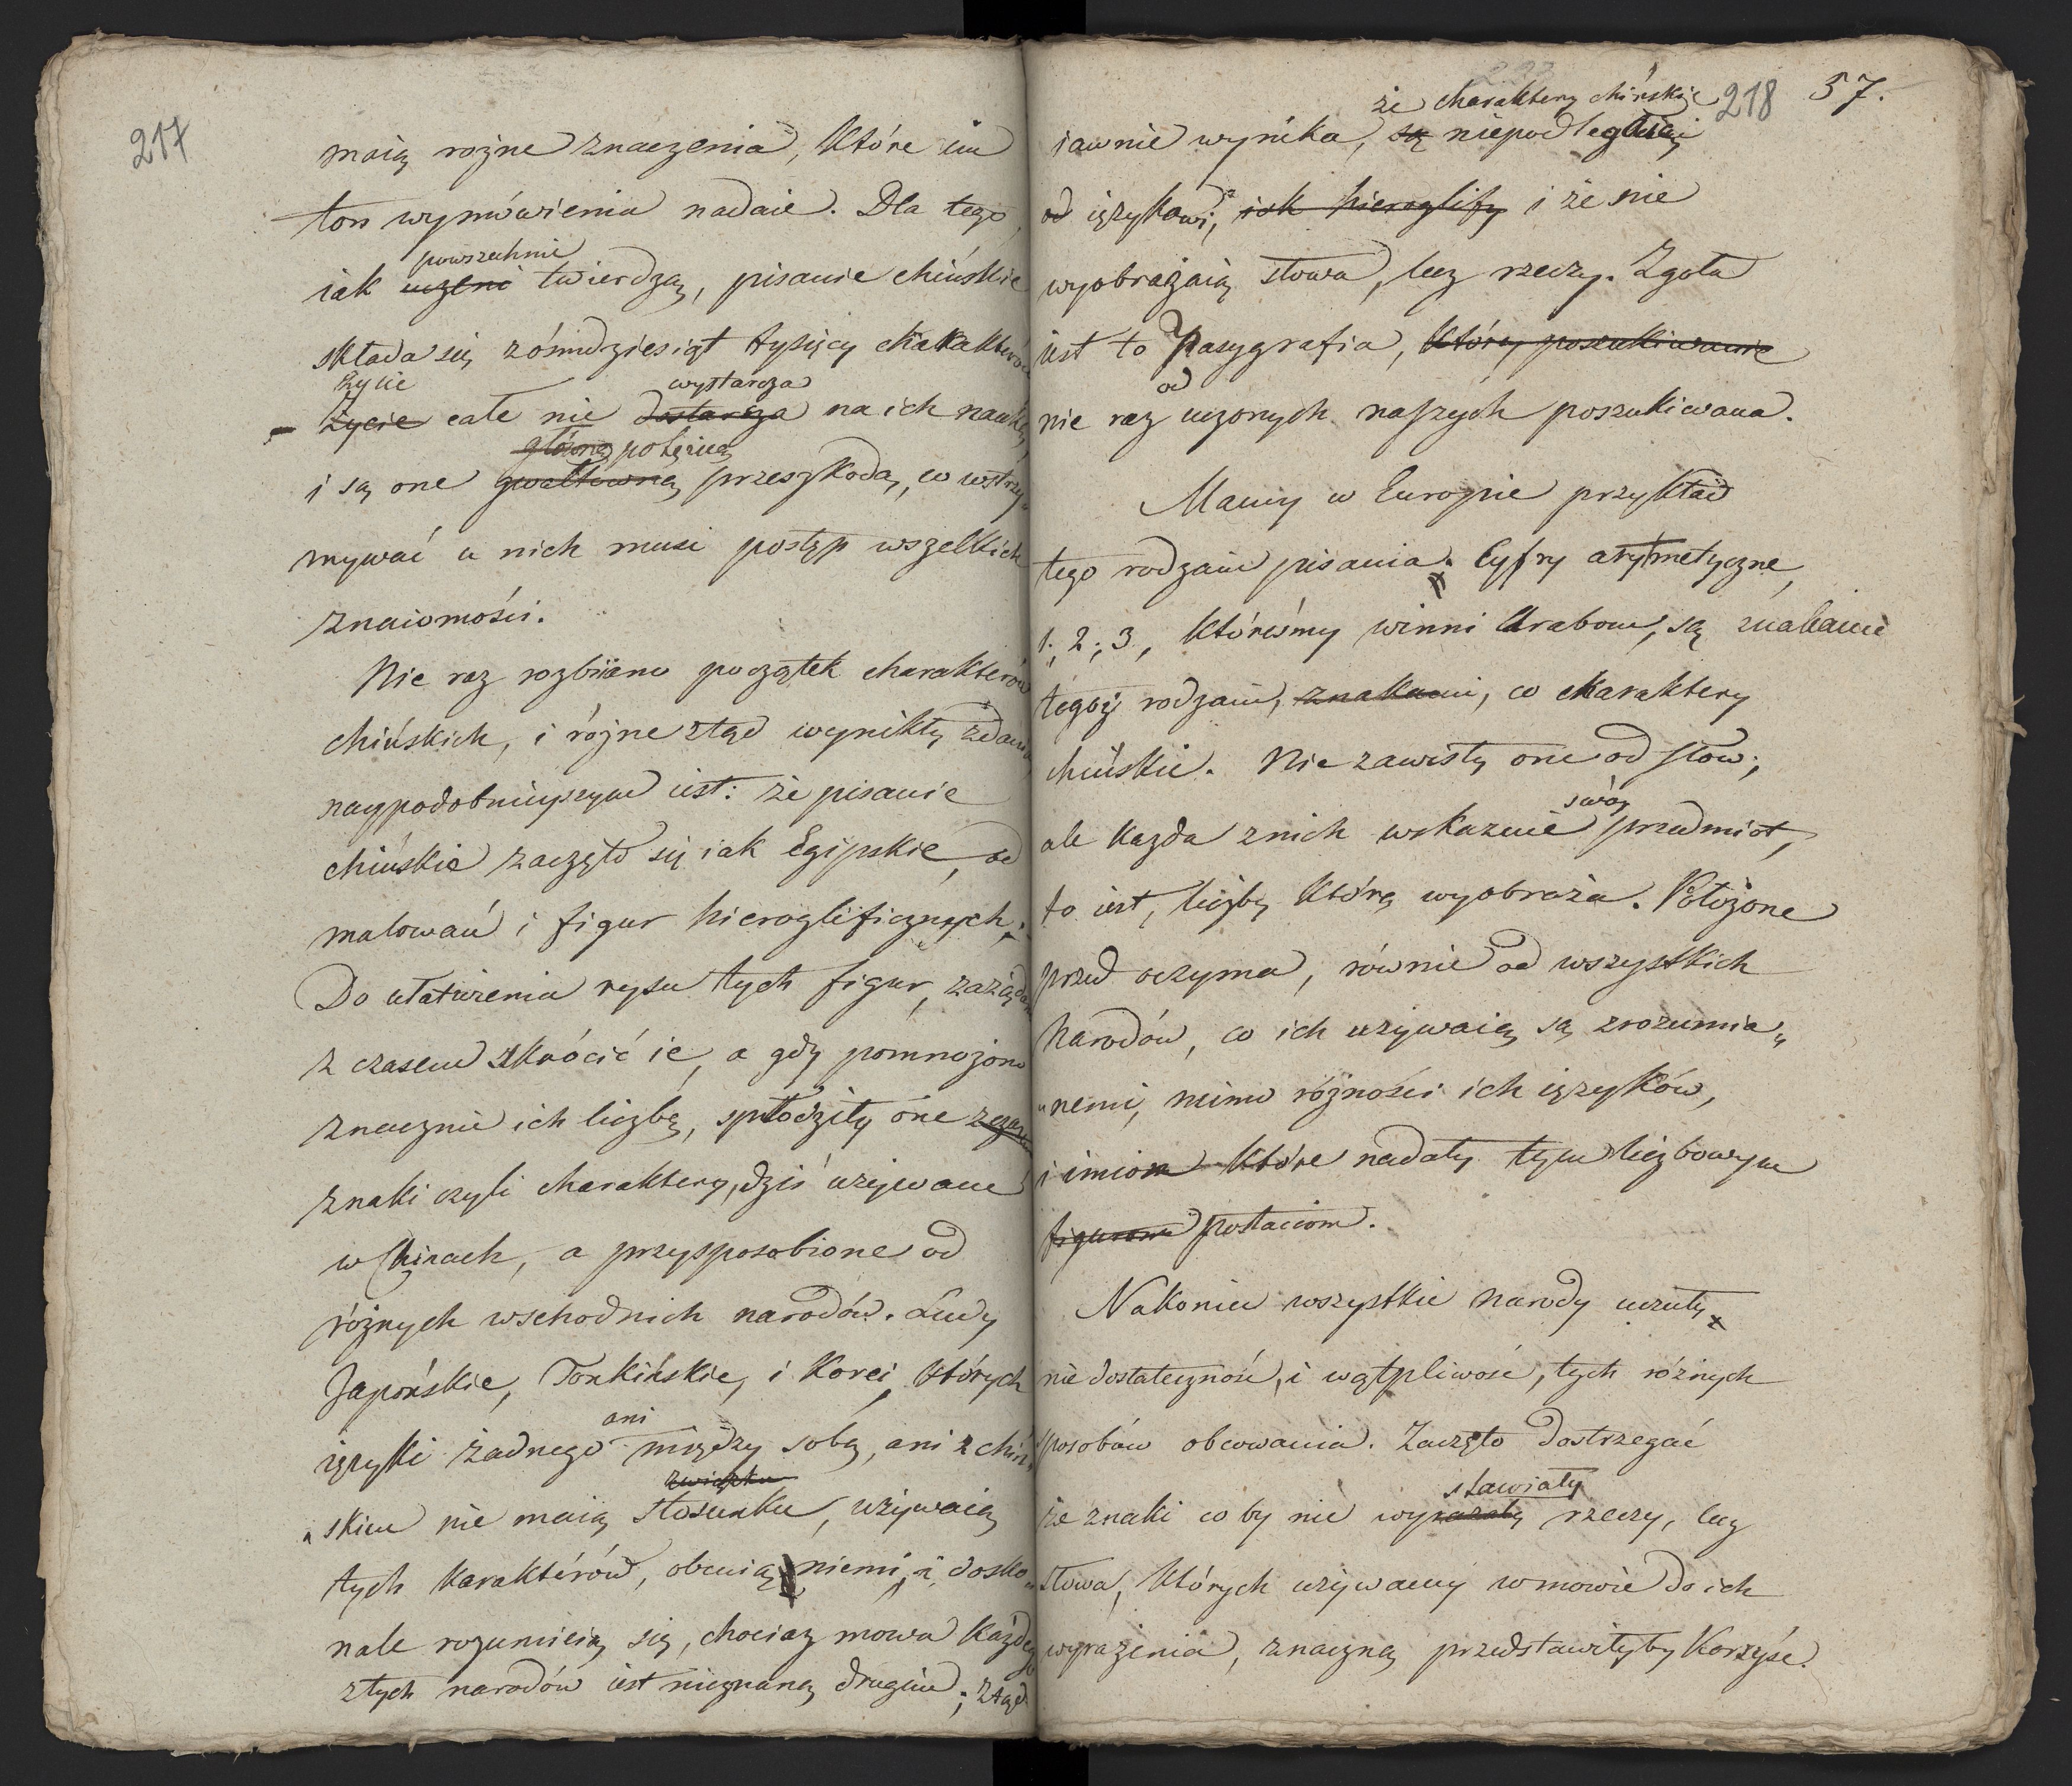 217
maią rożne znaczenia, które im
ton wymówienia nadaie. Dla tego,
powszechnie
iak uczeni twierdzą, pisanie chińskie
składa się zósmdziesiąt tysięcy charakterów
życie wystarcza
życie całe nie dostarcza na ich naukę,
główną potężną
i są one gwałtowną przeszkodą, co wstrzy„
mywać u nich musi postęp wszelkich
znaiomości.
Nie raz rozbiiano początek charakterów
chińskich, i różne ztąd wynikły zdania,
naypodobnieyszym iest: że pisanie
chińskie zaczęło się iak Egipskie, od
malowań i figur hieroglificznych.
Do ułatwienia rysu tych figur, zażądano
z czasem skrócić ie, a gdy pomnożono
znacznie ich liczbę, spłodziły one z czasem
znaki czyli charaktery, dziś używane
w Chinach, a przysposobione od
różnych wschodnich narodów. Ludy
Japońskie, Tonkińskie, i Korei, których
ani
ięzyki żadnego między sobą, ani z chiń„
związku
„skim nie maią stosunku, używaią
tych karakterów, obcuią niemi, i dosko„
nale rozumieią się, chociaż mowa każdego
ztych narodów iest nieznaną drugim; ztąd
218 57.
że charaktery chińskie
iawnie wynika, są niepodległemi
od ięzykowi, iak hieroglify i że nie
wyobrażaią słowa, lecz rzeczy. Zgoła
iest to Pasygrafia, który poszukiwanie
od
nie raz uczonych naszych poszukiwana.
Mamy w Europie przykład
tego rodzaiu pisania. Cyfry arytmetyczne,
1, 2, 3, któreśmy winni Arabom, są znakami
tegoż rodzaiu, znakami, co charaktery
chińskie. Nie zawisły one od słów;
swóy
ale każda znich wskazuie przedmiot,
to iest, liczbę którą wyobraża. Położone
przed oczyma, równie od wszystkich
Narodów, co ich używaią są zrozumia„
„nemi, mimo różności ich ięzyków,
i imion które nadały tym liczbowym
figurom postaciom.
Nakoniec wszystkie narody uczuły
nie dostateczność, i wątpliwość, tych różnych
sposobów obcowania. Zaczęto dostrzegać
stawiały
że znaki co by nie wyrażały rzeczy, lecz
słowa, których używamy w mowie do ich
wyrażenia, znaczną przedstawiłyby korzyść.